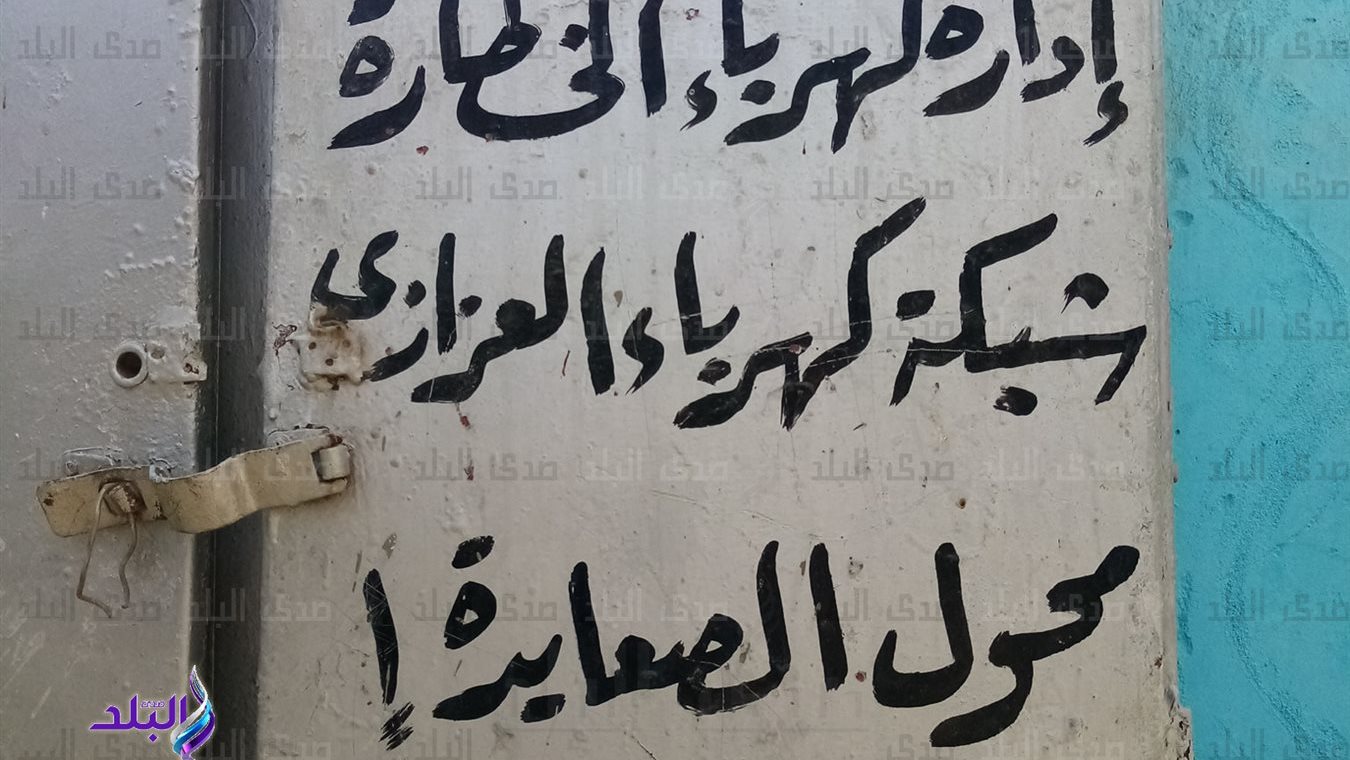 إدارة كهرباء الخطارة
شبكة كهرباء العزازى
محول الصعايدة إ
صدى البلد